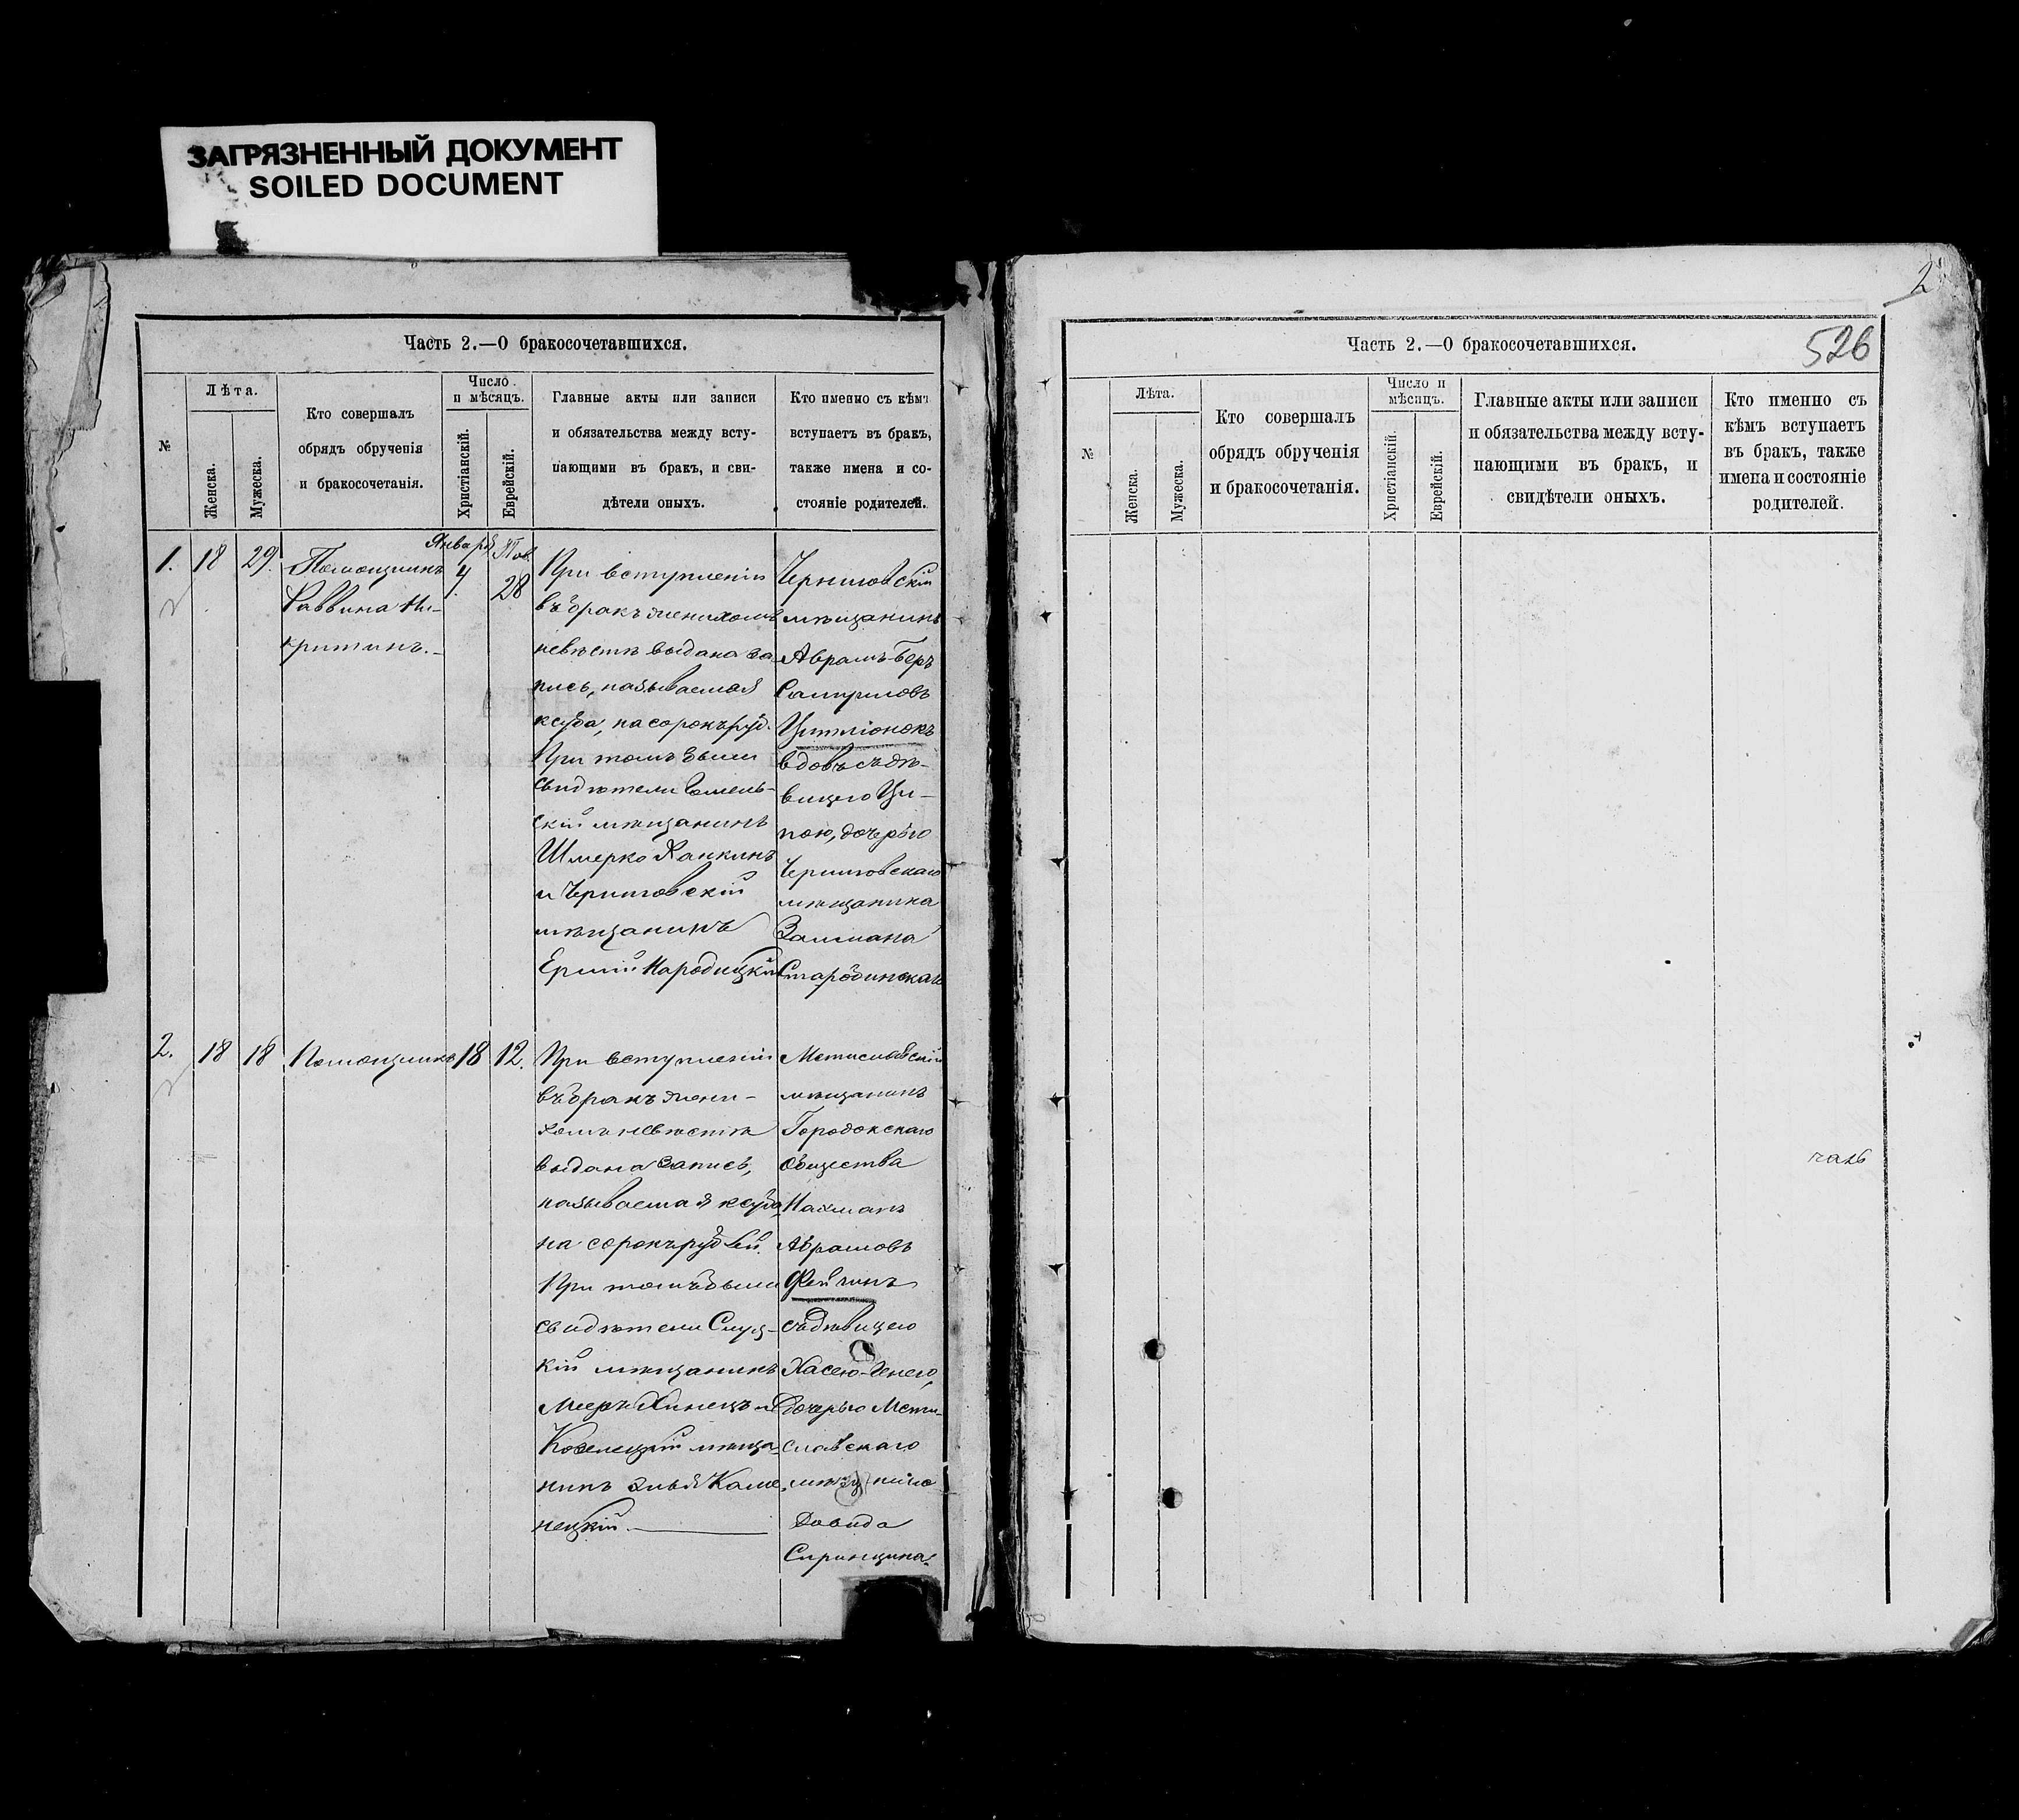 ЗАГРЯЗНЕННЫЙ ДОКУМЕНТ
SOILED DOCUMENT
Часть 2.—О бракосочетавшихся.
№
Лѣта.
Женска.
Мужеска.
Кто совершалъ
обрядъ обрученія
и бракосочетанія.
Число
и мѣсяцъ.
Христіанскій.
Еврейскій.
Главные акты или записи
и обязательства между всту-
пающими въ бракъ, и сви-
дѣтели оныхъ.
Кто именно съ кѣмъ
вступаетъ въ бракъ,
также имена и со-
стояніе родителей.
1.
18
29.
Помощникъ
Раввина Ни-
критинъ.-
Января
4.
Тов.
28
При вступленіи
въ бракъ женихомъ
невѣстѣ выдана за-
пись, называемая
ксуба, на сорокъ руб.
При томъ были
свидѣтели Гомель-
скій мѣщанинъ
Шмерко Ханкинъ
и Черниговскій
мѣщанинъ
Народицкій
Черниговскій
мѣщанинъ
Абрамъ-Беръ
вдовъ съ дѣ-
вицею Ци-
пою, дочерью
Черниговскаго
мѣщанина
Залмана
Стародинскаго
2.
18
18
Помощникъ
18
12.
При вступленіи
въ бракъ жени-
хомъ невѣстѣ
выдана запись,
называемая ксуба,
на сорокъ рублей.
При томъ были
свидѣтели Слуц-
кій мѣщанинъ
Мееръ Хинецъ и
Козелецкій мѣща-
нинъ Элья Каме-
нецкій.
Мстиславскій
мѣщанинъ
Городокскаго
общества
Нахманъ
Абрамовъ
Фейгинъ
съ дѣвицею
Хасею-Генею,
дочерью Мсти-
славскаго
Давида
Спринцина.
2
526
Часть 2.—О бракосочетавшихся.
№
Лѣта.
Женска.
Мужеска.
Кто совершалъ
обрядъ обрученія
и бракосочетанія.
Число и
мѣсяцъ.
Христіанскій.
Еврейскій.
Главные акты или записи
и обязательства между всту-
пающими въ бракъ, и
свидѣтели оныхъ.
Кто именно съ
кѣмъ вступаетъ
въ бракъ, также
имена и состояніе
родителей.